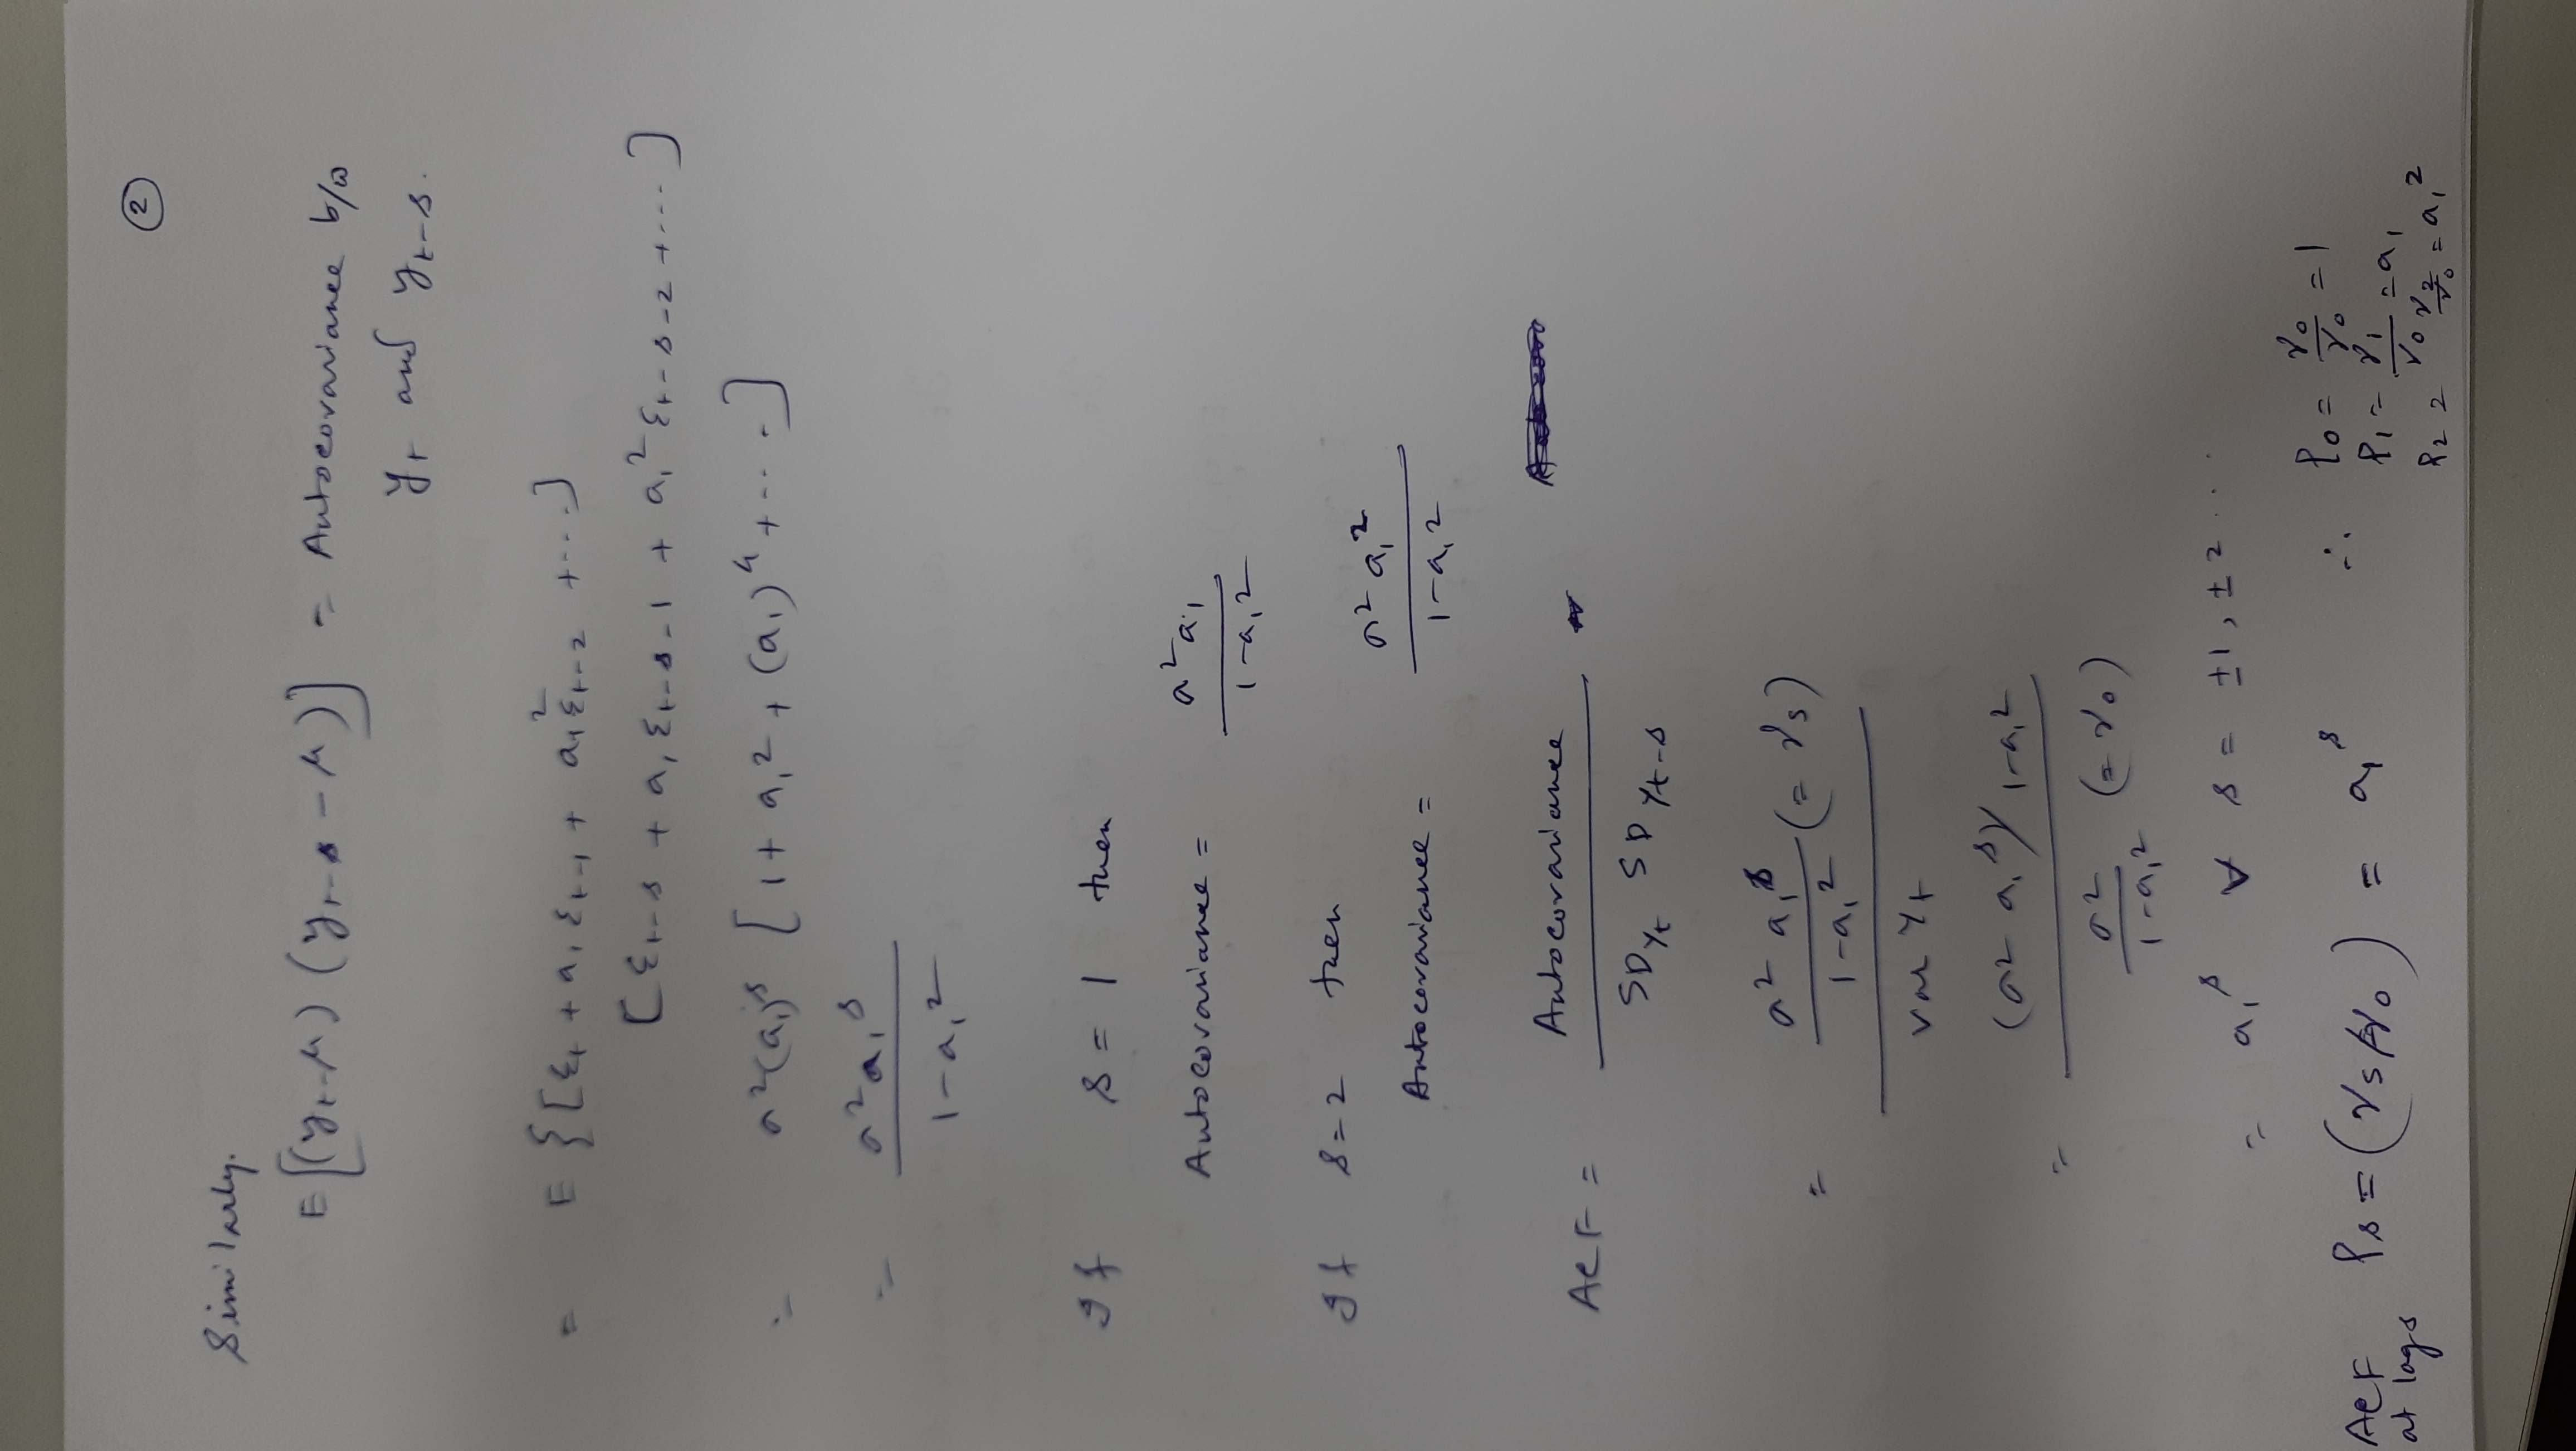 2
Similarly.
E[(yₜ-μ) (yₜ₋ₛ - μ)] = Autocovariance b/w
yₜ and yₜ₋ₛ.
= E {[εₜ + a₁ εₜ₋₁ + a₁² εₜ₋₂ + ....]
[εₜ₋ₛ + a₁ εₜ₋ₛ₋₁ + a₁² εₜ₋ₛ₋₂ + .... ]
= σ²(a₁)ˢ [1 + a₁² + (a₁)⁴ + .... ]
= σ² a₁ˢ / 1-a₁²
If s = 1 then
Autocovariance = σ² a₁ / 1-a₁²
If s=2 then
Autocovariance = σ² a₁² / 1-a₁²
ACF = Autocovariance / SD yₜ SD yₜ₋ₛ
= σ² a₁ˢ / 1-a₁² (= γₛ) / var yₜ
= (σ² a₁ˢ)/ 1-a₁² / σ² / 1-a₁² (= γ₀)
= a₁ˢ ∀ s = ±1, ±2 ...
ACF at lag s ρₛ = (γₛ/γ₀) = a₁ˢ
∴ ρ₀ = γ₀/γ₀ = 1
ρ₁ = γ₁/γ₀ = a₁
ρ₂ = γ₂/γ₀ = a₁²